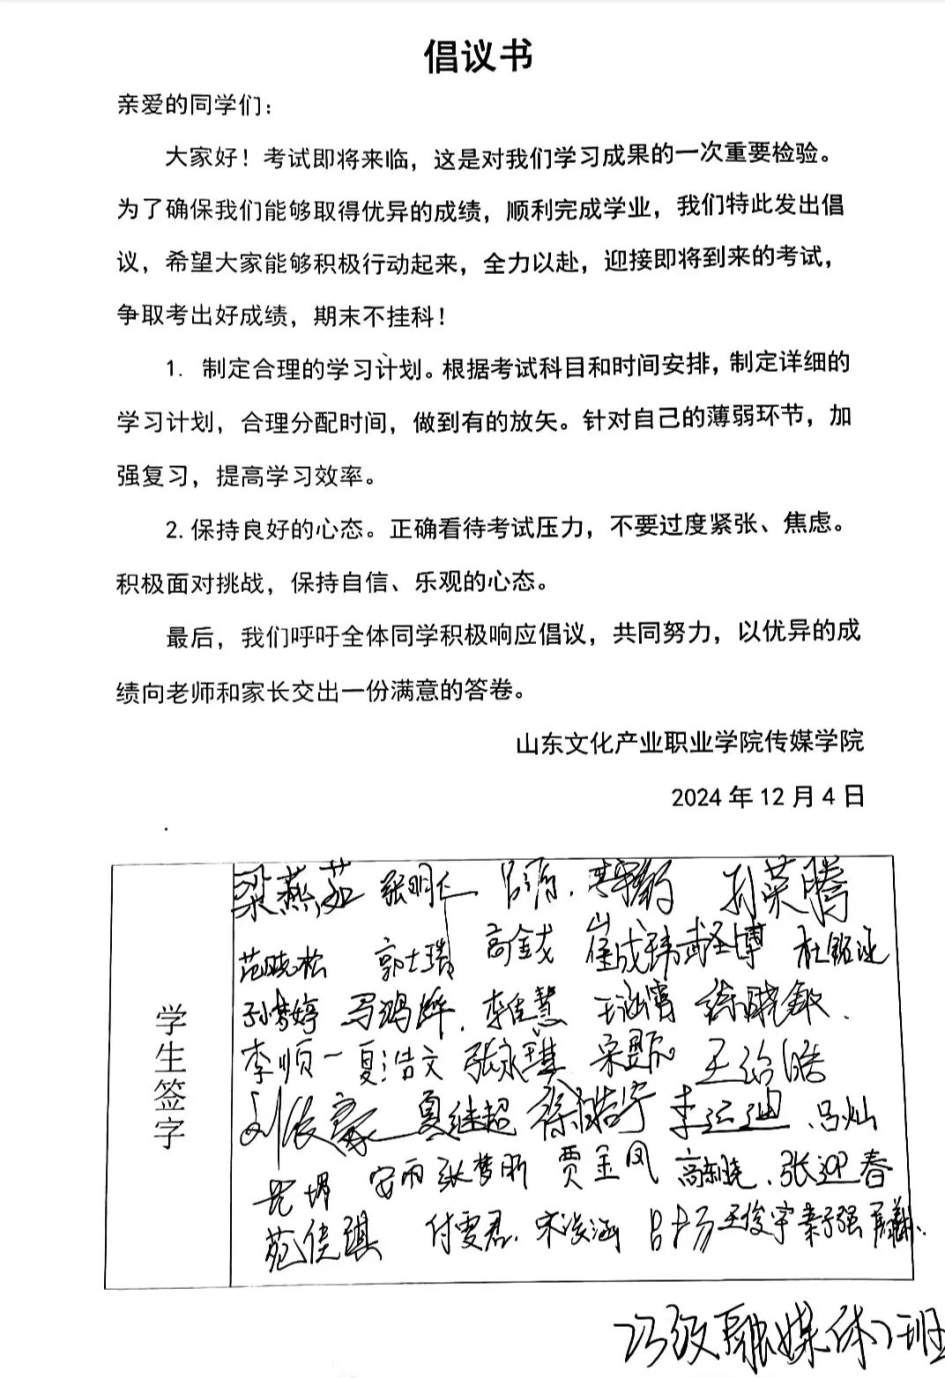 倡议书
亲爱的同学们：
大家好！考试即将来临，这是对我们学习成果的一次重要检验。
为了确保我们能够取得优异的成绩，顺利完成学业，我们特此发出倡
议，希望大家能够积极行动起来，全力以赴，迎接即将到来的考试，
争取考出好成绩，期末不挂科！
1. 制定合理的学习计划。根据考试科目和时间安排，制定详细的
学习计划，合理分配时间，做到有的放矢。针对自己的薄弱环节，加
强复习，提高学习效率。
2.保持良好的心态。正确看待考试压力，不要过度紧张、焦虑。
积极面对挑战，保持自信、乐观的心态。
最后，我们呼吁全体同学积极响应倡议，共同努力，以优异的成
绩向老师和家长交出一份满意的答卷。
山东文化产业职业学院传媒学院
2024年12月4日
学生签字
梁燕茹 张明仁 孙荣腾
范晓松 郭士瑞 高金戈 崔成玮 武圣博
孙梦婷 马鸿烨 李佳慧 王涵霄 徐晓敏
李顺一 夏浩文 张永琪 王治皓
夏继超 徐浩宇 李运迪 吕灿
安雨 张梦昕 贾金凤 高东晓 张迎春
苑佳琪 付雯君 宋浚涵 吕扬 王俊宇 秦子强
23级融媒体2班